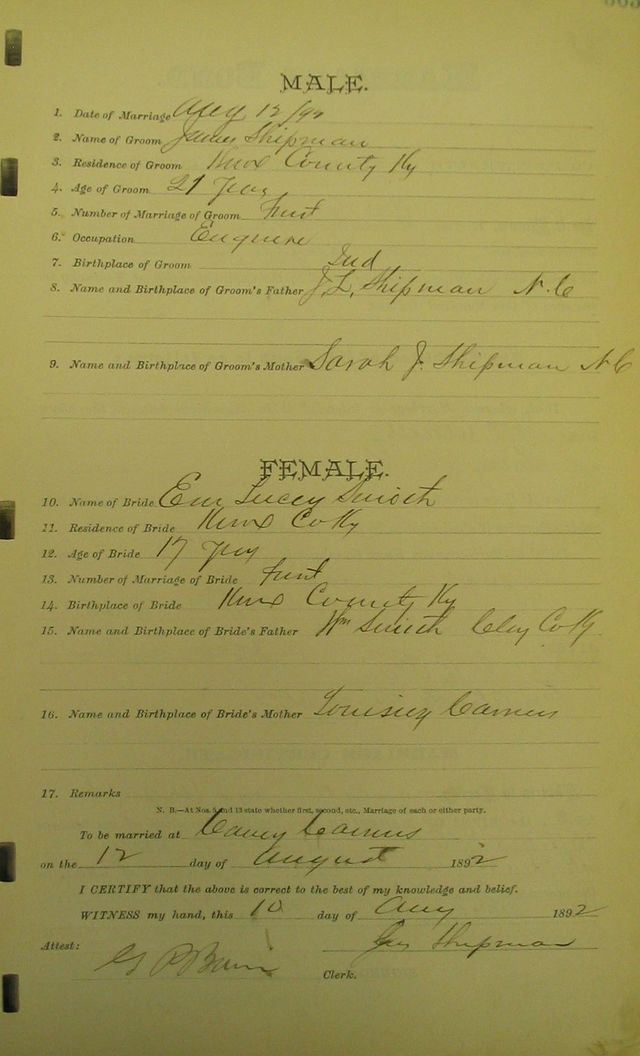 MALE.
1. Date of Marriage Aug 12/92
2. Name of Groom James Shipman
3. Residence of Groom Knox County Ky
4. Age of Groom 21 years
5. Number of Marriage of Groom First
6. Occupation
7. Birthplace of Groom Ind
8. Name and Birthplace of Groom's Father J. L. Shipman N. C
9. Name and Birthplace of Groom's Mother Sarah J. Shipman N C
FEMALE.
10. Name of Bride Smith
11. Residence of Bride Knox Co Ky
12. Age of Bride 17 years
13. Number of Marriage of Bride First
14. Birthplace of Bride Knox County Ky
15. Name and Birthplace of Bride's Father Wm Smith Clay Co Ky.
16. Name and Birthplace of Bride's Mother
17. Remarks
N. B.—At Nos. 5 and 13 state whether first, second, etc., Marriage of each or either party.
To be married at
on the 12 day of August 1892
I CERTIFY that the above is correct to the best of my knowledge and belief.
WITNESS my hand, this 10 day of Aug 1892
Jas Shipman
Attest:
Clerk.